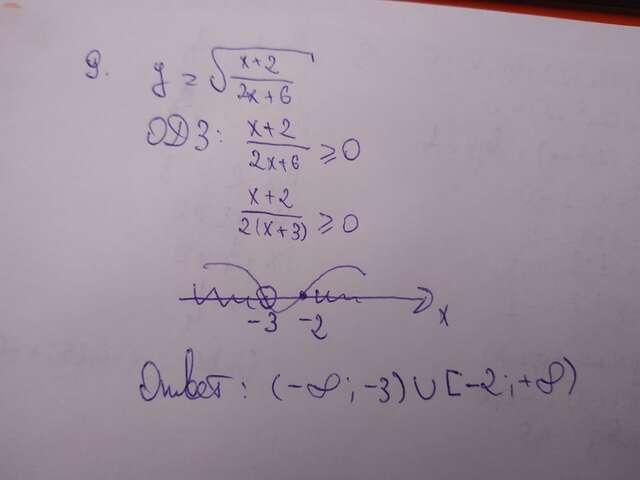 9. y = √(x+2)/(2x+6)
ОДЗ: (x+2)/(2x+6) ≥ 0
(x+2)/(2(x+3)) ≥ 0
-3 -2 x
Ответ: (-∞; -3) ∪ [-2; +∞)